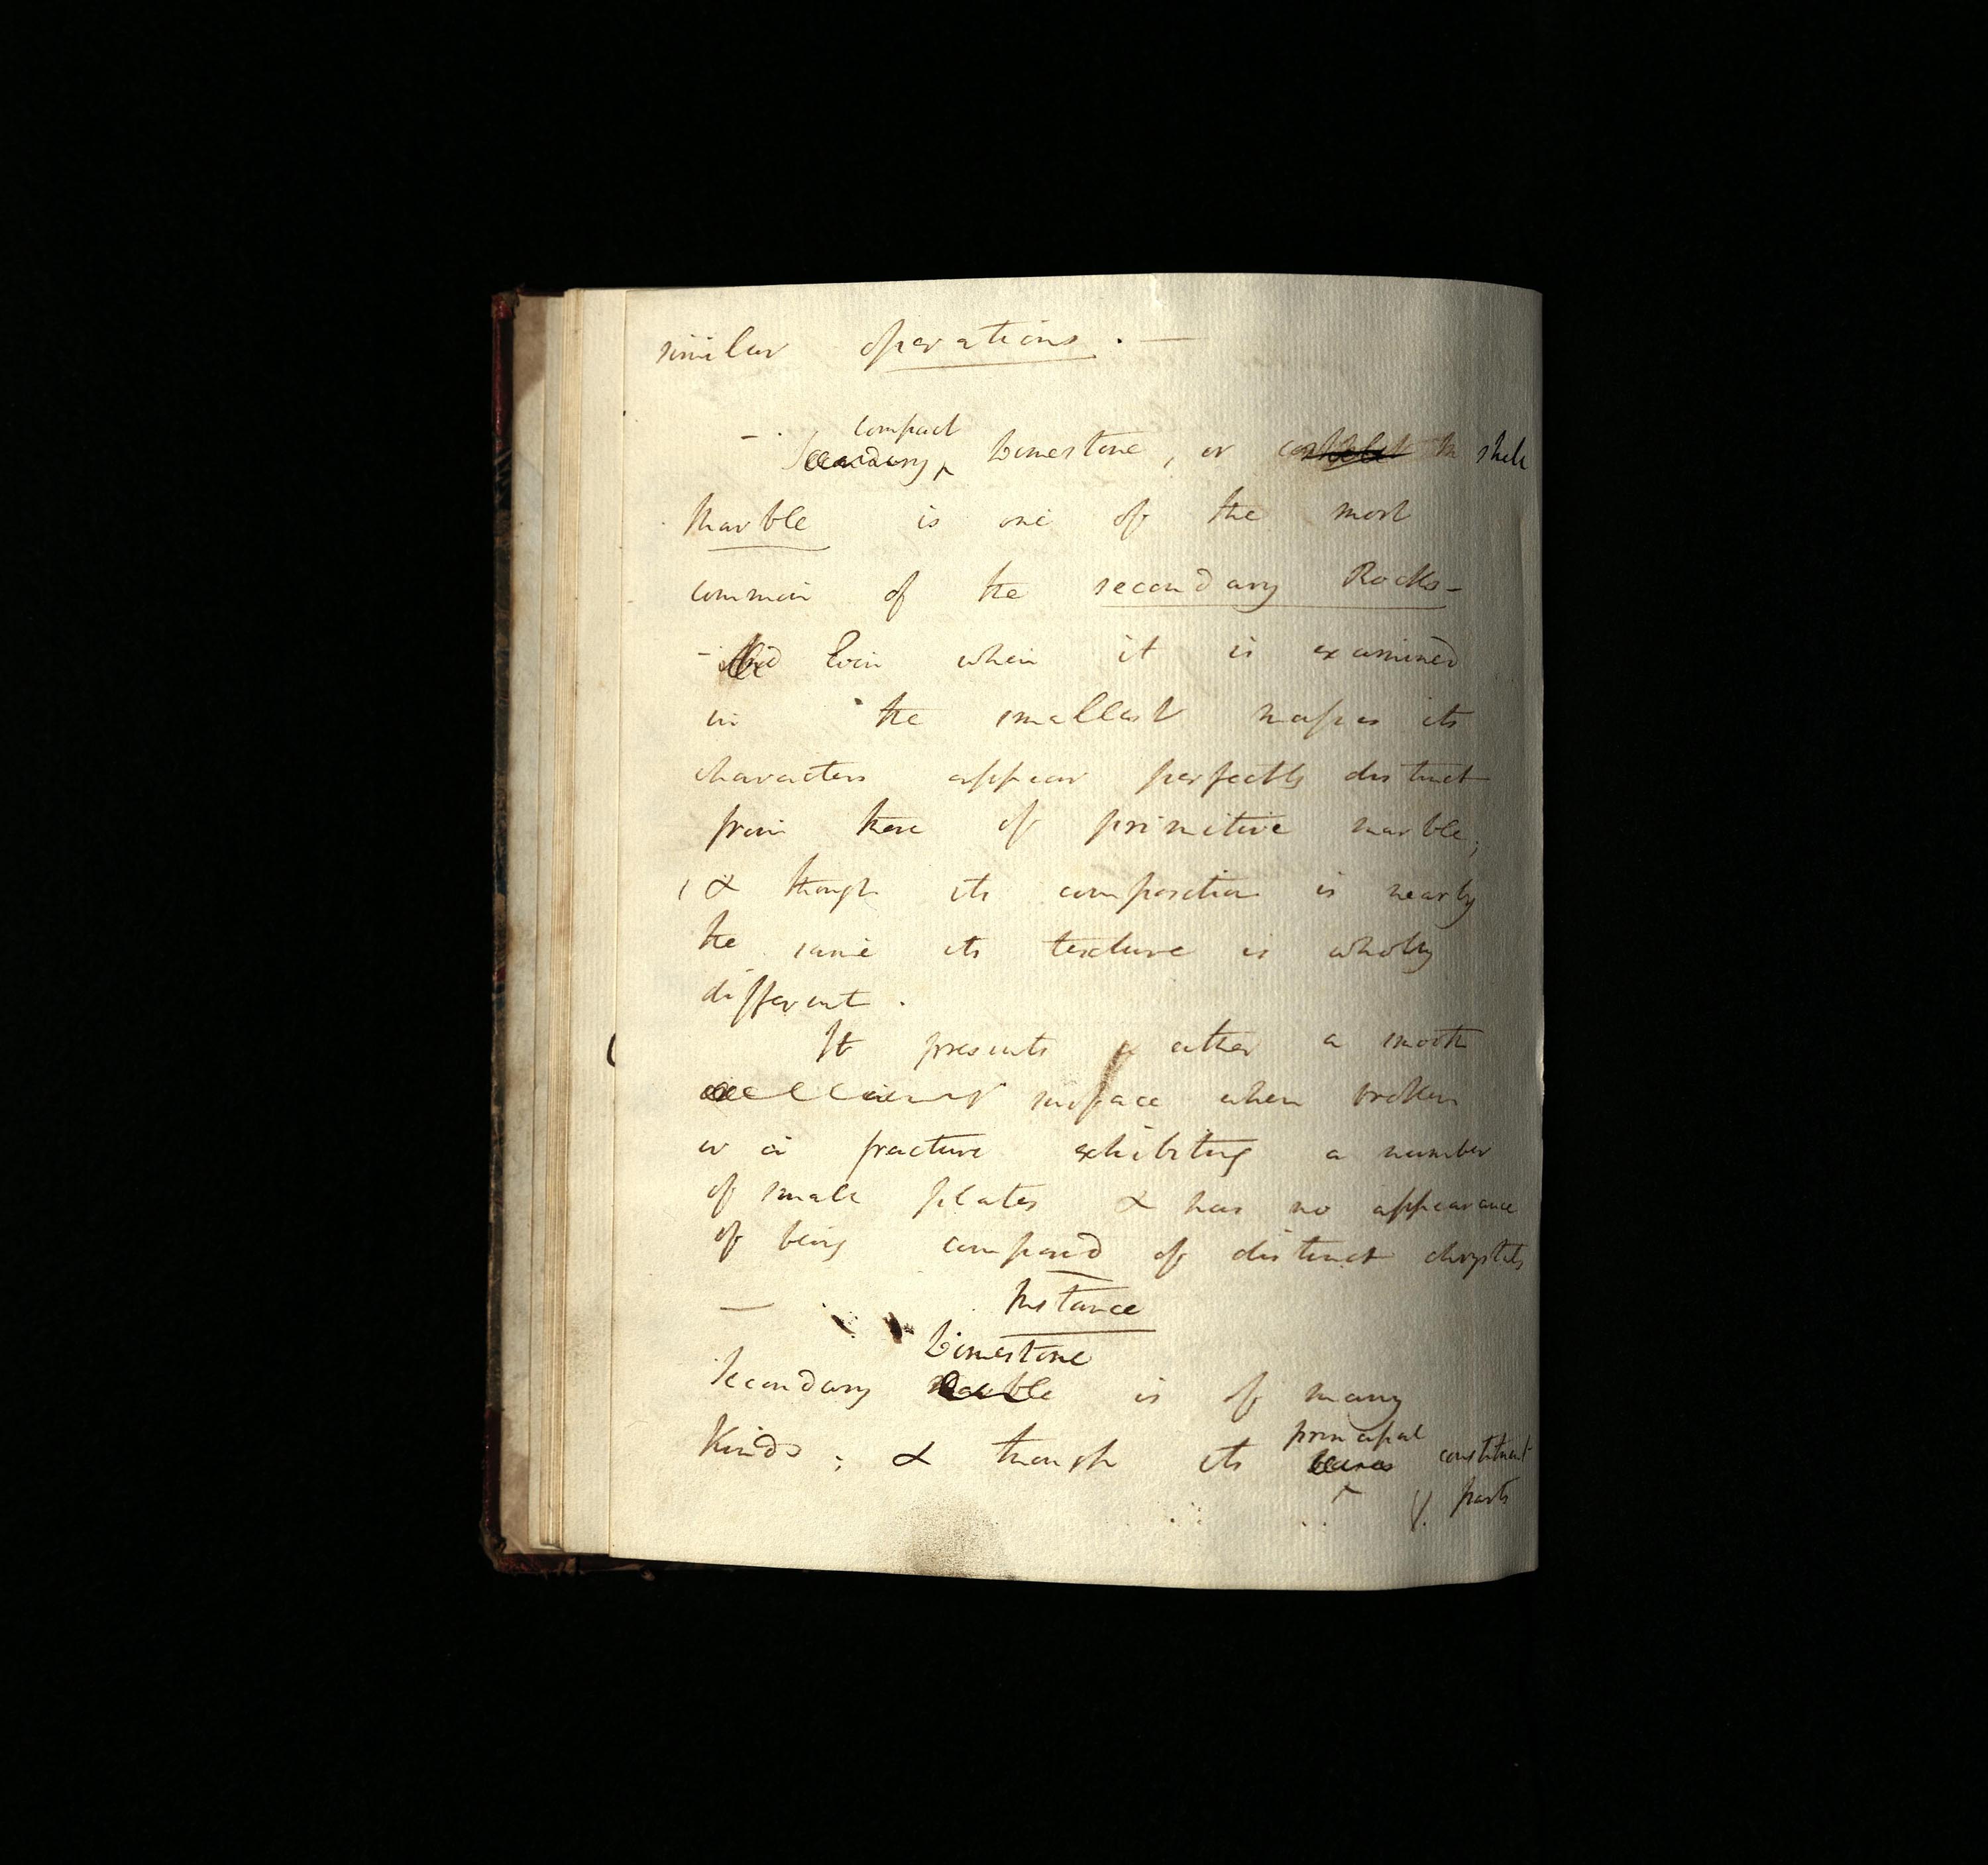 similar operations. —
compact
— Secondary Limestone, or shell
Marble is one of the most
common of the secondary Rocks —
— Even when it is examined
in the smallest masses its
characters appear perfectly distinct
from those of primitive marble;
& though its composition is nearly
the same its texture is wholly
different.
It presents either a smooth
surface when broken
or a fracture exhibiting a number
of small plates & has no appearance
of being composed of distinct chrystals
— Instance
Limestone
Secondary marble is of many
Kinds; & though its principal constituent
parts